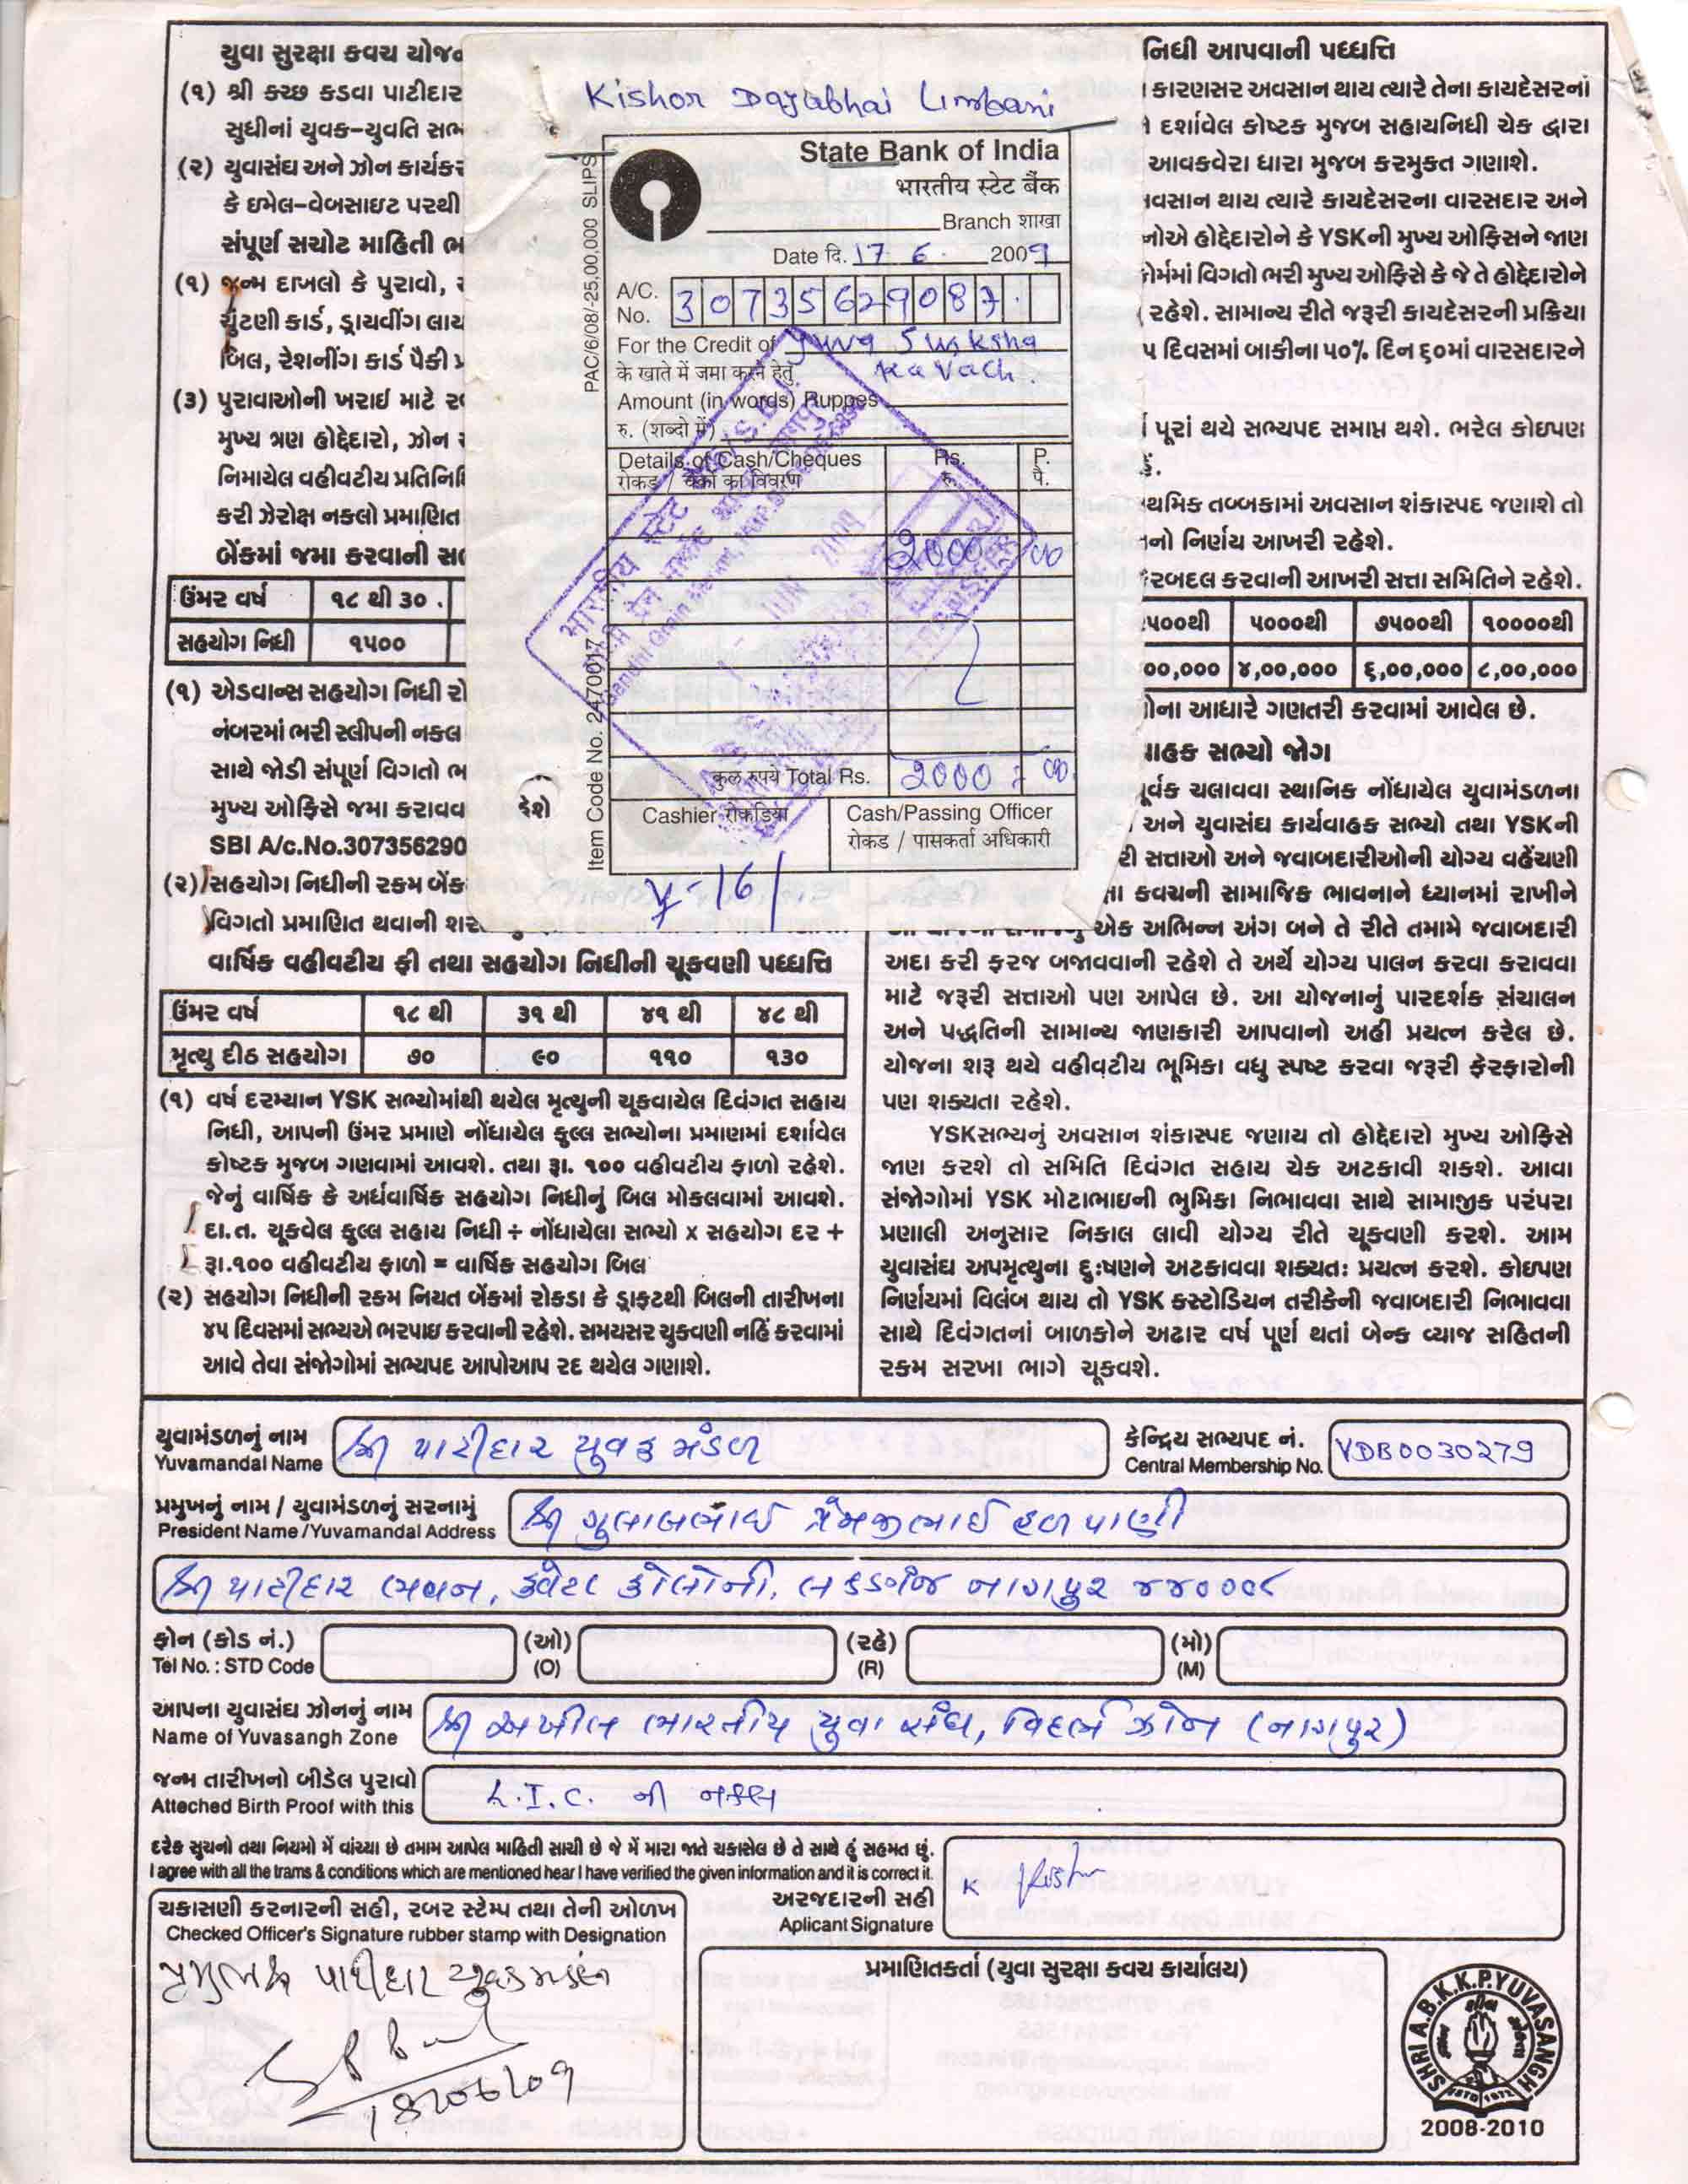 યુવા સુરક્ષા કવચ યોજન
(૧) શ્રી કચ્છ કડવા પાટીદાર
સુધીનાં યુવક-યુવતિ સભ
(૨) યુવાસંઘ અને ઝોન કાર્યકર
કે ઇમેલ-વેબસાઇટ પરથી
સંપૂર્ણ સચોટ માહિતી ભ
(૧) જન્મ દાખલો કે પુરાવો,
ચુંટણી કાર્ડ, ડ્રાયવીંગ લાય
બિલ, રેશનીંગ કાર્ડ પૈકી પ્ર
(૩) પુરાવાઓની ખરાઇ માટે ર
મુખ્ય ત્રણ હોદ્દેદારો, ઝોન
નિમાયેલ વહીવટીય પ્રતિનિ
કરી ઝેરોક્ષ નકલો પ્રમાણિત
બેંકમાં જમા કરવાની સ
ઉંમર વર્ષ ૧૮ થી ૩૦.
સહયોગ નિધી ૧૫૦૦
(૧) એડવાન્સ સહયોગ નિધી રો
નંબરમાં ભરી સ્લીપની નકલ
સાથે જોડી સંપૂર્ણ વિગતો ભ
મુખ્ય ઓફિસે જમા કરાવવ દેશે
SBI A/c.No.307356290
(૨) સહયોગ નિધીની રકમ બેંક
વિગતો પ્રમાણિત થવાની શર
વાર્ષિક વહીવટીય ફી તથા સહયોગ નિધીની ચૂકવણી પધ્ધત્તિ
ઉંમર વર્ષ ૧૮ થી ૩૧ થી ૪૧ થી ૪૮ થી
મૃત્યુ દીઠ સહયોગ ૭૦ ૯૦ ૧૧૦ ૧૩૦
(૧) વર્ષ દરમ્યાન YSK સભ્યોમાંથી થયેલ મૃત્યુની ચૂકવાયેલ દિવંગત સહાય
નિધી, આપની ઉંમર પ્રમાણે નોંધાયેલ કુલ્લ સભ્યોના પ્રમાણમાં દર્શાવેલ
કોષ્ટક મુજબ ગણવામાં આવશે. તથા રૂા. ૧૦૦ વહીવટીય ફાળો રહેશે.
જેનું વાર્ષિક કે અર્ધવાર્ષિક સહયોગ નિધીનું બિલ મોકલવામાં આવશે.
દા.ત. ચૂકવેલ કુલ્લ સહાય નિધી ÷ નોંધાયેલા સભ્યો x સહયોગ દર +
રૂા.૧૦૦ વહીવટીય ફાળો = વાર્ષિક સહયોગ બિલ
(૨) સહયોગ નિધીની રકમ નિયત બેંકમાં રોકડા કે ડ્રાફટથી બિલની તારીખના
૪૫ દિવસમાં સભ્યએ ભરપાઇ કરવાની રહેશે. સમયસર ચુકવણી નહિં કરવામાં
આવે તેવા સંજોગોમાં સભ્યપદ આપોઆપ રદ થયેલ ગણાશે.
Kishor Dayabhai Limbani
State Bank of India
भारतीय स्टेट बैंक
Branch शाखा
Date दि. 17 6 2009
A/C. No. 30735629087
For the Credit of Yuva Suraksha
के खाते में जमा करने हेतु Kavach.
Amount (in words) Ruppes
रु. (शब्दो में)
Details of Cash/Cheques Rs. P.
रोकड / चेकों का विवरण रु. पै.
2000 00
कुल रुपये Total Rs. 2000 = 00
Cashier रोकडिया Cash/Passing Officer
रोकड / पासकर्ता अधिकारी
PAC/6/08/-25,00,000 SLIPS
Item Code No. 2470017
JUN 2009
y-161
નિધી આપવાની પધ્ધત્તિ
કારણસર અવસાન થાય ત્યારે તેના કાયદેસરનાં
દર્શાવેલ કોષ્ટક મુજબ સહાયનિધી ચેક દ્વારા
આવકવેરા ધારા મુજબ કરમુકત ગણાશે.
વસાન થાય ત્યારે કાયદેસરના વારસદાર અને
નોએ હોદ્દેદારોને કે YSKની મુખ્ય ઓફિસને જાણ
ોર્મમાં વિગતો ભરી મુખ્ય ઓફિસે કે જે તે હોદ્દેદારોને
રહેશે. સામાન્ય રીતે જરૂરી કાયદેસરની પ્રક્રિયા
૫ દિવસમાં બાકીના ૫૦% દિન ૬૦માં વારસદારને
પૂરાં થયે સભ્યપદ સમાપ્ત થશે. ભરેલ કોઇપણ
થમિક તબ્બકામાં અવસાન શંકાસ્પદ જણાશે તો
નો નિર્ણય આખરી રહેશે.
રબદલ કરવાની આખરી સત્તા સમિતિને રહેશે.
૫૦૦થી ૫૦૦૦થી ૭૫૦૦થી ૧૦૦૦૦થી
૦૦,૦૦૦ ૪,૦૦,૦૦૦ ૬,૦૦,૦૦૦ ૮,૦૦,૦૦૦
ોના આધારે ગણતરી કરવામાં આવેલ છે.
ાહક સભ્યો જોગ
ૂર્વક ચલાવવા સ્થાનિક નોંધાયેલ યુવામંડળના
અને યુવાસંઘ કાર્યવાહક સભ્યો તથા YSKની
રી સત્તાઓ અને જવાબદારીઓની યોગ્ય વહેંચણી
ા કવચની સામાજિક ભાવનાને ધ્યાનમાં રાખીને
એક અભિન્ન અંગ બને તે રીતે તમામે જવાબદારી
અદા કરી ફરજ બજાવવાની રહેશે તે અર્થે યોગ્ય પાલન કરવા કરાવવા
માટે જરૂરી સત્તાઓ પણ આપેલ છે. આ યોજનાનું પારદર્શક સંચાલન
અને પદ્ધતિની સામાન્ય જાણકારી આપવાનો અહીં પ્રયત્ન કરેલ છે.
યોજના શરૂ થયે વહીવટીય ભૂમિકા વધુ સ્પષ્ટ કરવા જરૂરી ફેરફારોની
પણ શક્યતા રહેશે.
YSKસભ્યનું અવસાન શંકાસ્પદ જણાય તો હોદ્દેદારો મુખ્ય ઓફિસે
જાણ કરશે તો સમિતિ દિવંગત સહાય ચેક અટકાવી શકશે. આવા
સંજોગોમાં YSK મોટાભાઇની ભુમિકા નિભાવવા સાથે સામાજીક પરંપરા
પ્રણાલી અનુસાર નિકાલ લાવી યોગ્ય રીતે ચૂકવણી કરશે. આમ
યુવાસંઘ અપમૃત્યુના દુઃષણને અટકાવવા શક્યતઃ પ્રયત્ન કરશે. કોઇપણ
નિર્ણયમાં વિલંબ થાય તો YSK કસ્ટોડિયન તરીકેની જવાબદારી નિભાવવા
સાથે દિવંગતનાં બાળકોને અઢાર વર્ષ પૂર્ણ થતાં બેન્ક વ્યાજ સહિતની
રકમ સરખા ભાગે ચૂકવશે.
યુવામંડળનું નામ શ્રી પાટીદાર યુવક મંડળ કેન્દ્રિય સભ્યપદ નં. VDB0030279
Yuvamandal Name Central Membership No.
પ્રમુખનું નામ / યુવામંડળનું સરનામું શ્રી ગુલાબભાઈ પ્રેમજીભાઈ હળપાણી
President Name /Yuvamandal Address
શ્રી પાટીદાર ભવન, ક્વેટા કોલોની, લકડગંજ નાગપુર ૪૪૦૦૦૮
ફોન (કોડ નં.) (ઓ) (રહે) (મો)
Tel No. : STD Code (O) (R) (M)
આપના યુવાસંઘ ઝોનનું નામ શ્રી અખીલ ભારતીય યુવા સંઘ, વિદર્ભ ઝોન (નાગપુર)
Name of Yuvasangh Zone
જન્મ તારીખનો બીડેલ પુરાવો L.I.C. ની નકલ
Atteched Birth Proof with this
દરેક સુચનો તથા નિયમો મેં વાંચ્યા છે તમામ આપેલ માહિતી સાચી છે જે મેં મારા જાતે ચકાસેલ છે તે સાથે હું સહમત છું.
I agree with all the trams & conditions which are mentioned hear I have verified the given information and it is correct it.
અરજદારની સહી
Aplicant Signature
ચકાસણી કરનારની સહી, રબર સ્ટેમ્પ તથા તેની ઓળખ
Checked Officer's Signature rubber stamp with Designation
પ્રમુખશ્રી પાટીદાર યુવક મંડળ
18/06/09
પ્રમાણિતકર્તા (યુવા સુરક્ષા કવચ કાર્યાલય)
SHRI A.B.K.K.P. YUVASANGH
ESTD 1972
2008-2010